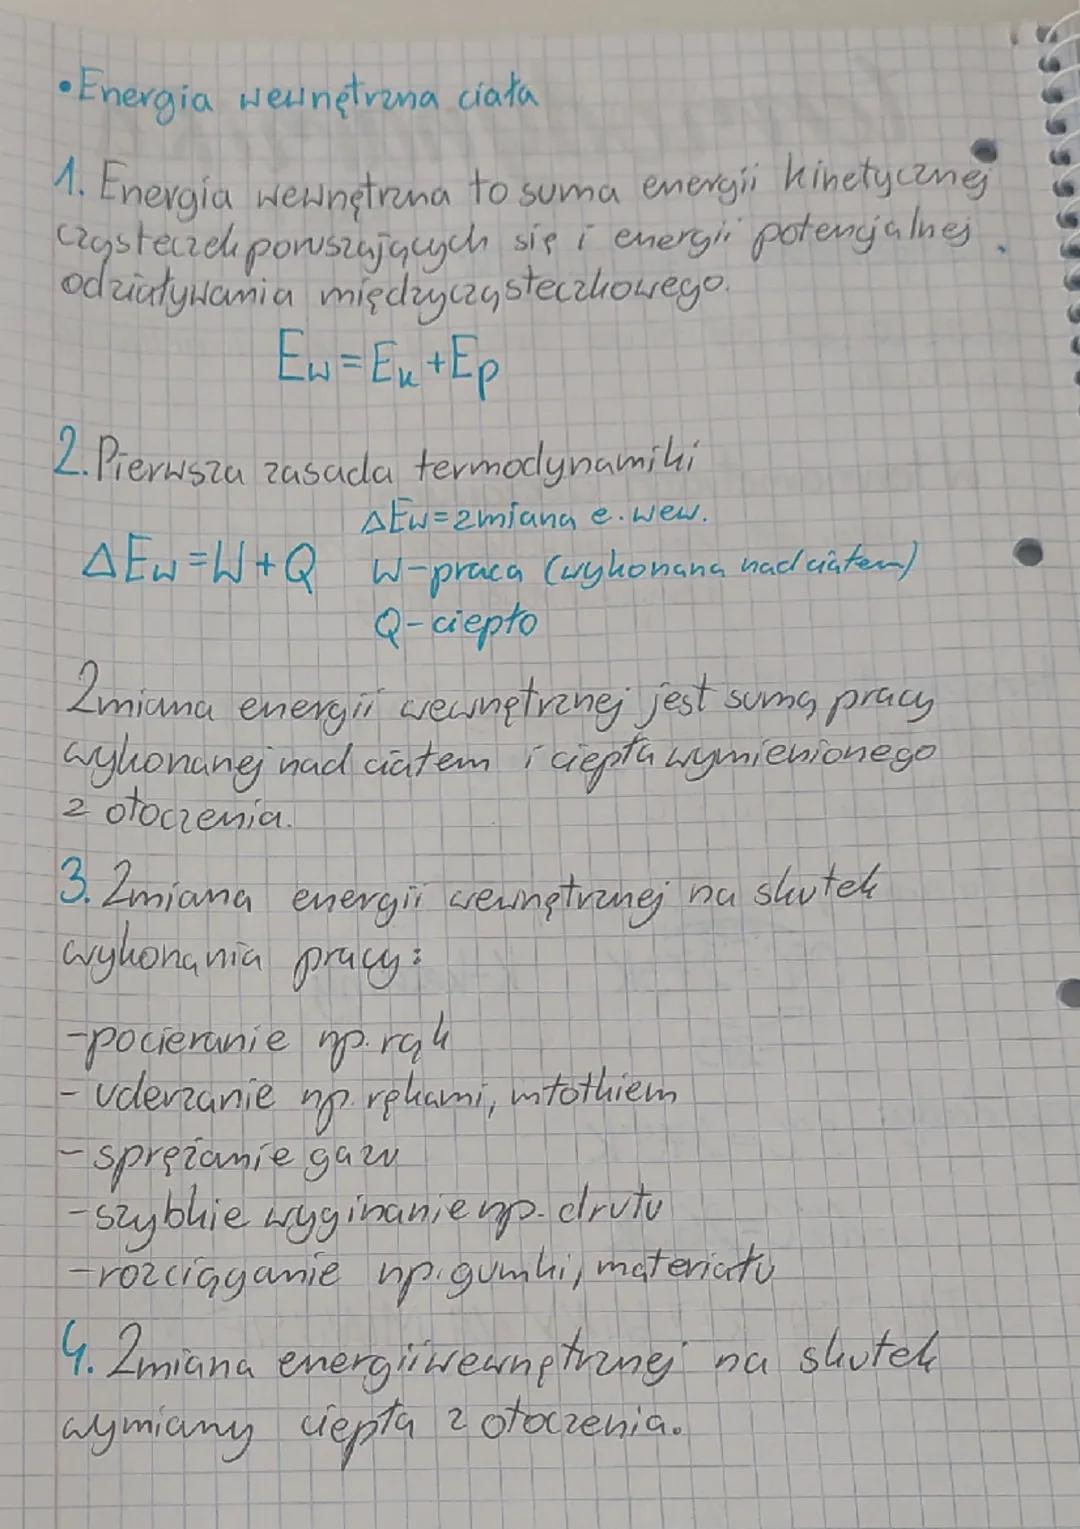 •Energia wewnętrzna ciała
1. Energia wewnętrzna to suma energii kinetycznej
cząsteczek poruszających się i energii potencjalnej
odziaływania międzycząsteczkowego.
Ew=Ek+Ep
2. Pierwsza zasada termodynamiki
ΔEw=zmiana e. wew.
ΔEw=W+Q W-praca (wykonana nad ciałem)
Q-ciepło
Zmiana energii wewnętrznej jest sumą pracy
wykonanej nad ciałem i ciepła wymienionego
z otoczenia.
3. Zmiana energii wewnętrznej na skutek
wykonania pracy:
-pocieranie np. rąk
- uderzanie np. rękami, młotkiem
- sprężanie gazu
-szybkie wyginanie np. drutu
-rozciąganie np. gumki, materiału
4. Zmiana energii wewnętrznej na skutek
wymiany ciepła z otoczenia.